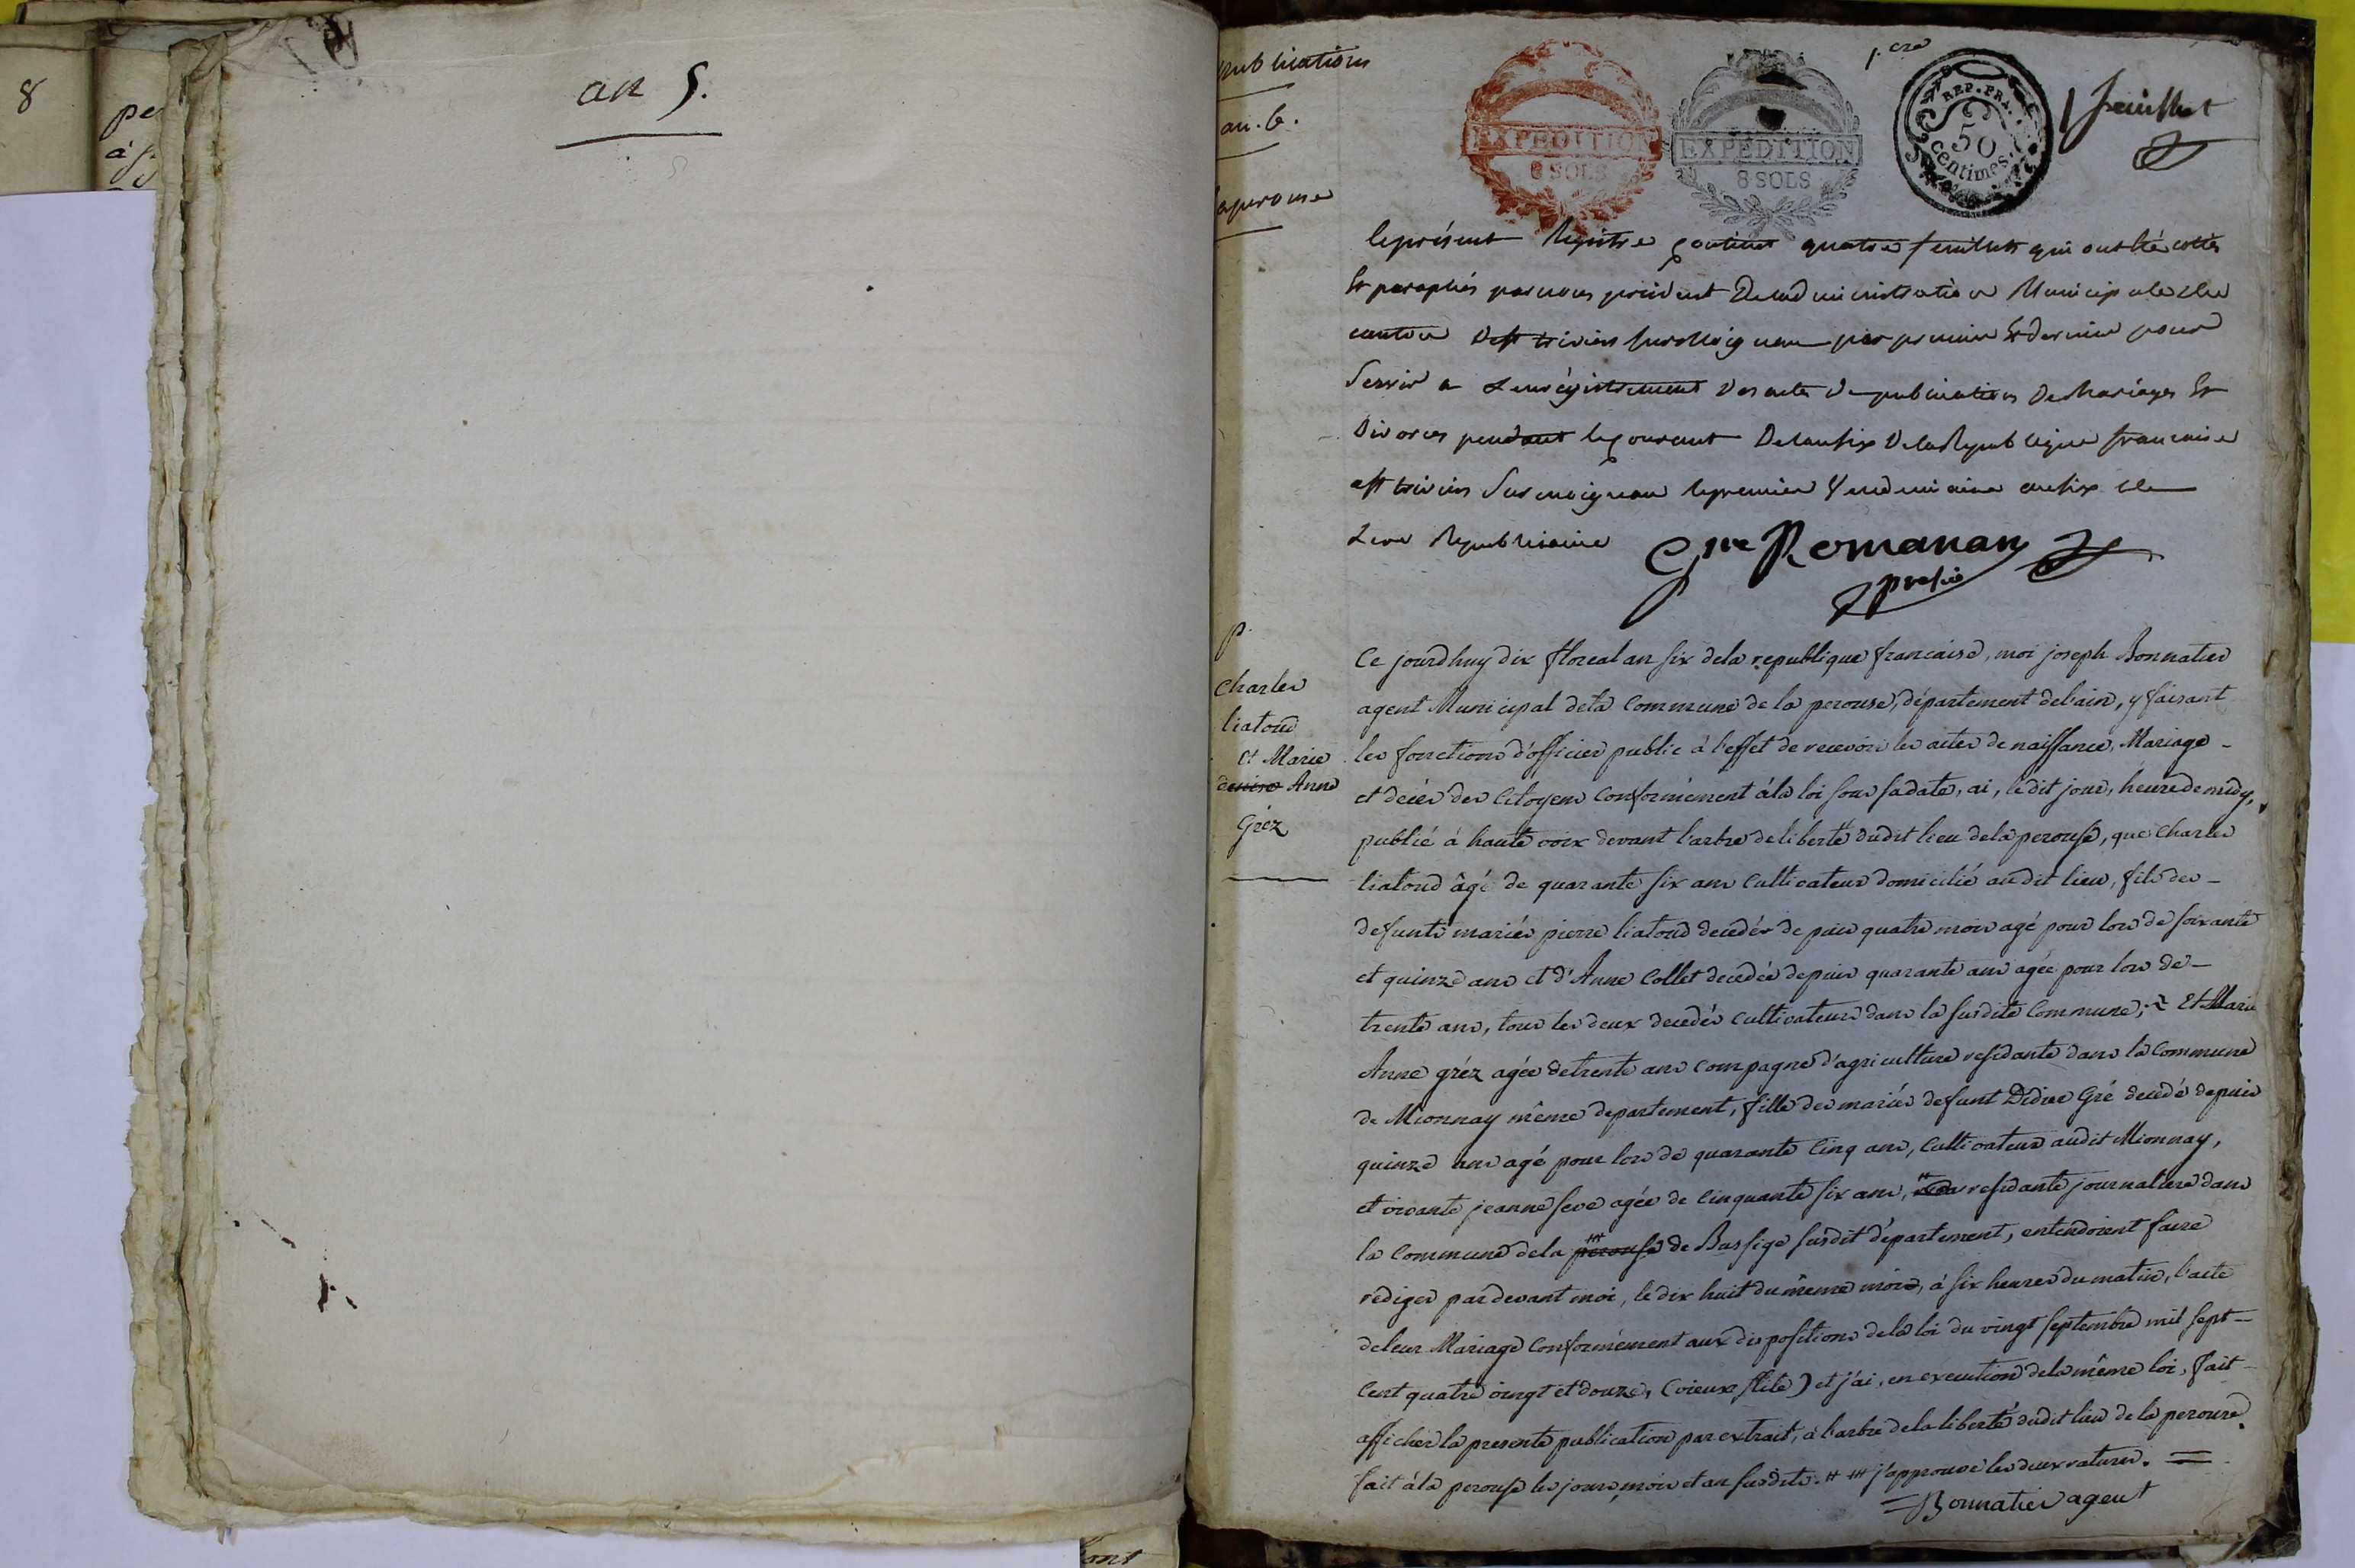 8
pe
à
an 5.
publications
an. 6.
laperouse
EXPEDITION
8 SOLS
EXPEDITION
8 SOLS
REP. FRA.
50
centimes
1.er
feuillet
le présent Registre contient quatre feuillets qui ont été cottés
Et paraphés par nous président De lad ministration Municipale du
canton De St trivier sur Moignan par premier Et dernier pour
Servir a L'enrégistrement Des actes De publications De Mariages Et
Divorces pendant le courant De lan six De la Republique francaise
a St trivier Sur moignan le premier Vendemiaire an six de
L'ere Republicaine
Romanan
presid
p.
Charles
liatoud
et Marie
denise Anne
Gréz
Ce jourdhuy dix floreal an six de la republique francaise, moi joseph Bonnatier
agent Municipal de la Commune de la perouse, département de l'ain, y faisant
les fonctions d'officier public à l'effet de recevoir les actes de naissance, Mariage
et décès des Citoyens Conformément à la loi sous sa date, ai, le dit jour, heure de midy,
publié à haute voix devant l'arbre de liberté dudit lieu de la perouse, que Charles
liatoud âgé de quarante six ans Cultivateur domicilié audit lieu, fils des
defunts mariés pierre liatoud decedés depuis quatre mois agé pour lors de soixante
et quinze ans et d'Anne Collet decedée depuis quarante ans agée pour lors de
trente ans, tous les deux decedés Cultivateurs dans la susdite Commune; Et Marie
Anne gréz agée de trente ans compagne d'agriculture residante dans la Commune
de Mionnay même departement, fille des mariés defunt Didier Gré decedé depuis
quinze ans agé pour lors de quarante Cinq ans, Cultivateur audit Mionnay,
et vivante jeanne seve agée de Cinquante six ans, residante journaliere dans
la Commune de la perouse de Bussige susdit département, entendoient faire
rediger pardevant moi, le dix huit du même mois, à six heures du matin, l'acte
de leur Mariage Conformément aux dispositions de la loi du vingt septembre mil sept
Cent quatre vingt et douze, (vieux stile) et j'ai, en execution de la même loi, fait
afficher la presente publication par extrait, à l'arbre de la liberté dudit lieu de la perouse.
fait à la perouse les jours, mois et an susdits. # ## j'approuve les deux ratures.
Bonnatier agent
ont